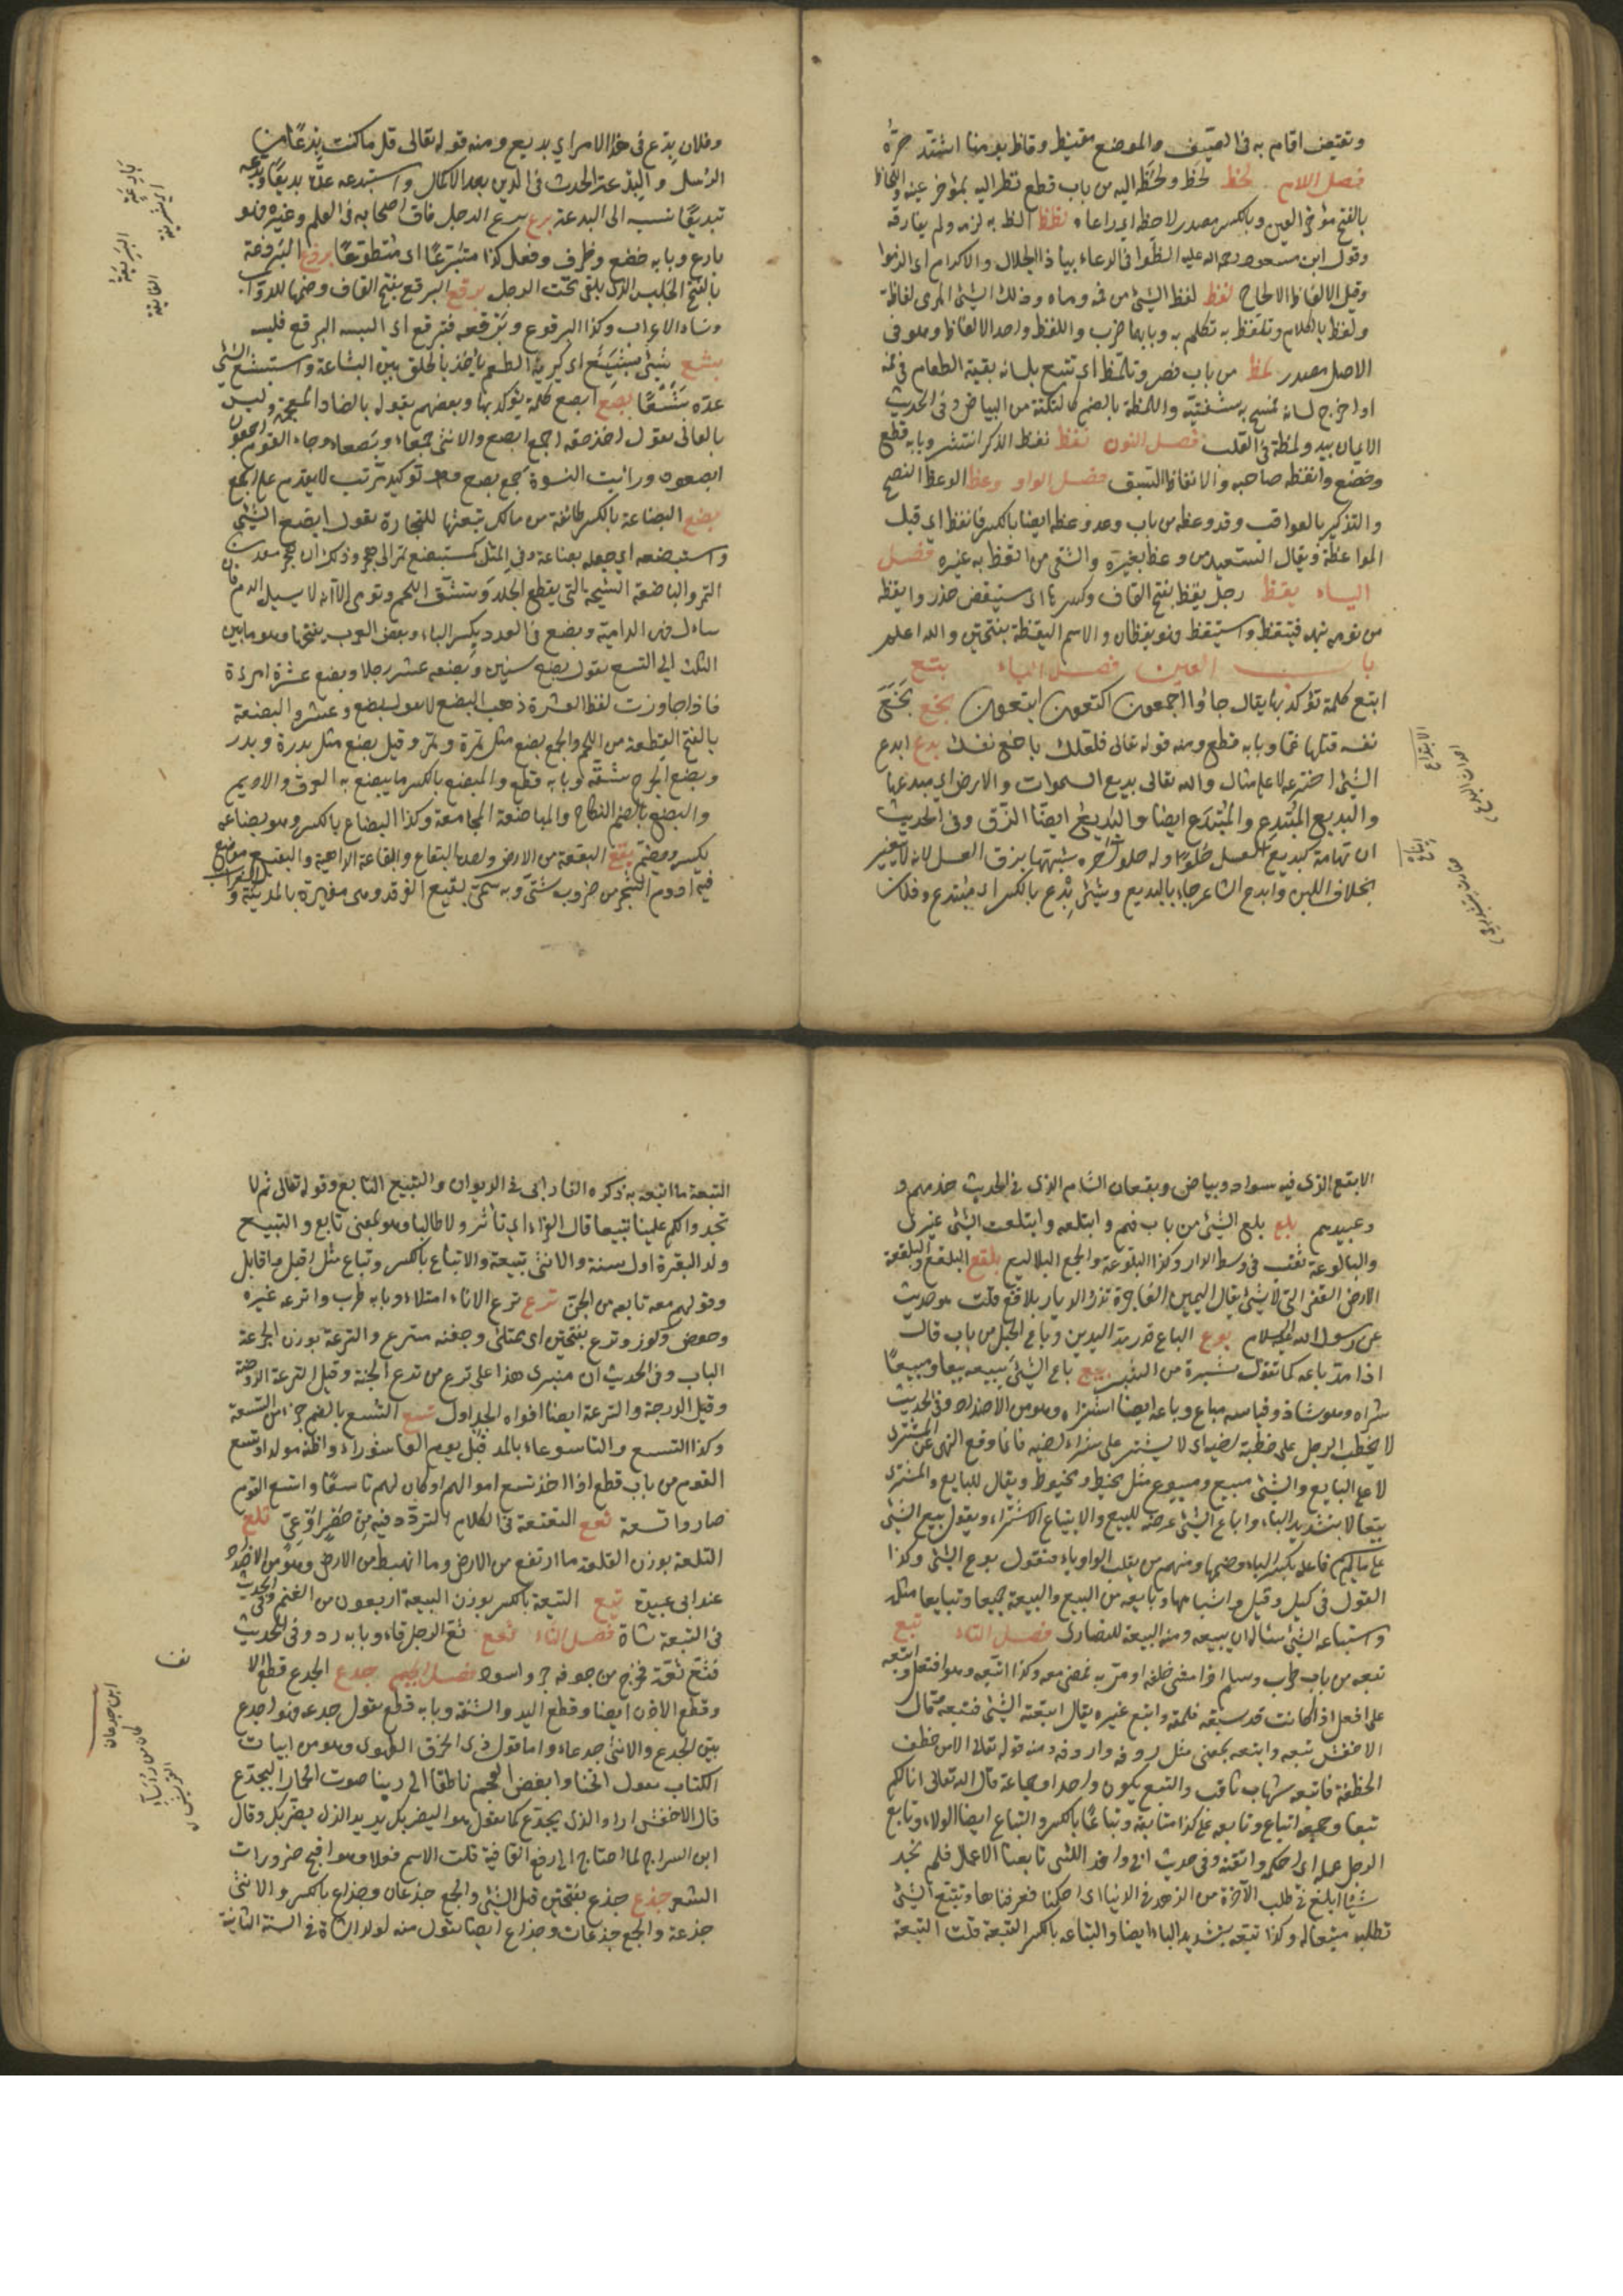 وتقيظ اقام به في الصيف والموضع مقيظ وقاظ يومنا اشتد حرّه
فصل اللام لحظ لحظه ولحظ اليه من باب قطع نظر اليه بمؤخر عينه واللحاظ
بالفتح مؤخر العين وبالكسر مصدر لاحظه اي راعاه لظظ الظ به لزمه ولم يفارقه
وقول ابن مسعود رحمه الله عليه الظوا في الدعاء بيا ذا الجلال والاكرام اى الزموا
وقيل الالظاظ الالحاح لفظ لفظ الشئ من فمه رماه وذلك الشئ المرمى لفاظة
ولفظ بالكلام وتلفظ به تكلم به وبابهما ضرب واللفظ واحد الالفاظ وهو في
الاصل مصدر لمظ من باب نصر وتلمّظ اى تتبع بلسانه بقية الطعام في فمه
او اخرج لسانه فمسح به شفتيه واللمظة بالضم كالنكتة من البياض وفي الحديث
الايمان يبدو لمظة في القلب فصل النون نعظ نعظ الذكر انتشر وبابه قطع
وخضع وانعظه صاحبه والانعاظ الشبق فصل الواو وعظ الوعظ النصح
والتذكير بالعواقب وقد وعظه من باب وعد وعظة ايضا بالكسر فاتعظ اى قبل
الموعظة ويقال السعيد من وعظ بغيره والشقى من اتعظ به غيره فصل
الياء يقظ رجل يقظ بفتح القاف وكسرها اى مستيقظ حذر وايقظه
من نومه نبهه فتيقظ واستيقظ فهو يقظان والاسم اليقظة بفتحتين والله اعلم
باب العين فصل الباء بتع
ابتع كلمة تؤكد بها يقال جاؤا اجمعون اكتعون ابتعون بخع بخع
نفسه قتلها غما وبابه قطع ومنه قوله تعالى فلعلك باخع نفسك بدع ابدع
الشئ اخترعه لا على مثال والله تعالى بديع السموات والارض اى مبدعها
والبديع المبتدِع والمبتدَع ايضا والبديع ايضا الزق وفي الحديث
ان تهامة كبديع العسل حلو اوله حلو آخره شبهها بزق العسل لانه لا يتغير
بخلاف اللبن وابدع الشاعر جاء بالبديع وشئ بدع بالكسر اى مبتدع وفلان
الابتداع
وفلان بدع في هذا الامر اي بديع ومنه قوله تعالى قل ما كنت بدعًا من
الرسل والبدعة الحدث في الدين بعد الاكمال واستبدعه عدّه بديعًا وبدّعه
تبديعًا نسبه الى البدعة برع برع الرجل فاق اصحابه في العلم وغيره فهو
بارع وبابه خضع وظرف وفعل كذا متبرعًا اى متطوعًا بردع البردعة
بالفتح الحلس الذى يلقى تحت الرحل برقع البرقع بفتح القاف وضمها للدواب
ونساء الاعراب وكذا البرقوع وبرقعه فتبرقع اى البسه البرقع فلبسه
بشع شئ بشع اى كريه الطعم ياخذ بالحلق بيّن البشاعة واستبشع الشئ
عدّه بشعًا بصع ابصع كلمة يؤكد بها وبعضهم يقوله بالضاد المعجمة وليس
بالعالى تقول اخذ حقه اجمع ابصع والانثى جمعاء بصعاء وجاء القوم اجمعون
ابصعون ورأيت النسوة جمع بصع وهو توكيد مرتب لا يقدم على اجمع
بضع البضاعة بالكسر طائفة من مالك تبعثها للتجارة تقول ابضع الشئ
واستبضعه اى جعله بضاعة وفي المثل كمستبضع تمر الى هجر وذلك ان هجر معدن
التمر والباضعة الشجة التى يقطع الجلد وتشق اللحم وتدمى الا انه لا يسيل الدم فان
سال فهى الدامية وبضع في العدد بكسر الباء وبعض العرب يفتحها وهو ما بين
الثلث الى التسع تقول بضع سنين وبضعة عشر رجلا وبضع عشرة امرءة
فاذا جاوزت لفظ العشرة ذهب البضع لا تقول بضع وعشرون والبضعة
بالفتح القطعة من اللحم والجمع بضع مثل تمرة وتمر وقيل بضع مثل بدرة وبدر
وبضع الجرح شقّه وبابه قطع والمبضع بالكسر ما يبضع به العرق والاديم
والبضع بالضم النكاح والمباضعة المجامعة وكذا البضاع بالكسر وبئر بضاعة
يكسر ويضم بقع البقعة من الارض واحدة البقاع والباقعة الداهية والبقيع موضع
فيه اروم الشجر من ضروب شتى وبه سمّى بقيع الغرقد وهى مقبرة بالمدينة و
البَرِيعَة
الفايقة
الابقع الذى فيه سواد وبياض وبقعان الشام الذى في الحديث خدمهم و
وعبيدهم بلع بلع الشئ من باب فهم وابتلعه وابتلعت الشئ غيرى
والبالوعة ثقب في وسط الدار وكذا البلوعة والجمع البلاليع بلقع البلقع والبلقعة
الارض القفر التى لا شئ بها يقال اليمين الفاجرة تذر الديار بلاقع قلت هو حديث
عن رسول الله عليه السلام بوع الباع قدر مد اليدين وباع الحبل من باب قال
اذا مدّ باعه كما تقول شبره من الشبر بيع باع الشئ يبيعه بيعا ومبيعًا
شراه وهو شاذ وقياسه مباع وباعه ايضا اشتراه وهو من الاضداد وفي الحديث
لا يخطب الرجل على خطبة اخيه اى لا يشتر على شراء اخيه فانما وقع النهى عن المشترى
لا على البايع والشئ مبيع ومبيوع مثل مخيط ومخيوط ويقال للبايع والمشترى
بيّعان بتشديد الياء واباع الشئ عرضه للبيع والابتياع الاشتراء ويقول بيع الشئ
على ما لم يسم فاعله بكسر الباء وضمها ومنهم من يقلب الياء واوا فيقول بوع الشئ وكذا
القول في كيل وقيل واشباهها وبايعه من البيع والبيعة جميعا وتبايعا مثله
واستباعه الشئ ساله ان يبيعه ومنه البيعة للنصارى فصل التاء تبع
تبعه من باب طرب وسلم اذا مشى خلفه او مر به فمضى معه وكذا اتبعه وهو افتعل واتبعه
على افعل اذا كانت قد سبقه فلحقه واتبع غيره يقال اتبعته الشئ فتبعه قال
الاخفش تبعه واتبعه بمعنى مثل ردفه واردفه ومنه قوله تعالى الا من خطف
الخطفة فاتبعه شهاب ثاقب والتبع يكون واحدا وجماعة قال الله تعالى انا كنا لكم
تبعا وجمعه اتباع وتابعه على كذا متابعة وتباعًا بالكسر والتباع ايضا الولاء وتابع
الرجل عمله اى احكمه واتقنه وفي حديث ابى واقد الليثى تابعنا الاعمال فلم نجد
شيئا ابلغ في طلب الآخرة من الزهد في الدنيا اى احكمنا فعرفناها وتتبع الشئ
تطلبه متبعا له وكذا تبّعه بتشديد الباء ايضا والتباعة بالكسر التبعة قلت التبعة
التبعة ما اتبعت به ذكره الفارابى في الديوان والتبيع التابع وقوله تعالى ثم لا
تجدوا لكم علينا به تبيعا قال الفراء اى ثائرا ولا طالبا وهو بمعنى تابع والتبيع
ولد البقرة اول سنة والانثى تبيعة والاتباع بالكسر وتباع مثل افيل وافايل
وقولهم معه تابعه من الجن ترع ترع الاناء امتلاء وبابه طرب واترعه غيره
وحوض وكوز وترع بفتحتين اى ممتلئ وجفنة مترعة والترعة بوزن الجرعة
الباب وفي الحديث ان منبرى هذا على ترعة من ترع الجنة وقيل الترعة الروضة
وقيل الدرجة والترعة ايضا افواه الجداول تسع التسع بالضم جزء من التسعة
وكذا التسيع والتاسوعاء بالمد قبل يوم العاشوراء واظنه مولد او تسع
القوم من باب قطع اذا اخذ تسع اموالهم او كان لهم تاسعًا واتسع القوم
صاروا تسعة تعع التعتعة في الكلام التردّد فيه من حصر او عىّ تلع
التلعة بوزن القلعة ما ارتفع من الارض وما انهبط من الارض وهو من الاضداد
عند ابى عبيدة تيع التيعة بالكسر بوزن البيعة اربعون من الغنم وفي الحديث
في التيعة شاة فصل الثاء ثعع ثع الرجل قاء وبابه رد وفي الحديث
فثع ثعّة فخرج من جوفه جرو اسود فصل الجيم جدع الجدع قطع الانف
وقطع الاذن ايضا وقطع اليد والشفة وبابه قطع تقول جدعه فهو اجدع
بيّن الجدع والانثى جدعاء واما قول ذى الخرق الطهوى وهو من ابيات
الكتاب يقول الخنا وابغض العجم ناطقا الى ربنا صوت الحمار اليجدّع
قال الاخفش اراد الذى يجدّع كما تقول هو اليضربك يريد الذى يضربك وقال
ابن السراج لما احتاج الى رفع القافية قلب الاسم فعلا وهو اقبح ضرورات
الشعر جذع جذع بفتحتين قبل الثنى والجمع جذعان وجذاع بالكسر والانثى
جذعة والجمع جذعات وجذاع ايضا تقول منه لولد الشاة في السنة الثانية
ابن جدعان